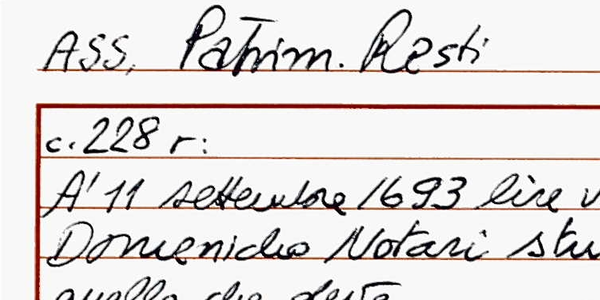 ASS. Patrim. Resti
c. 228 r:
A' 11 settembre 1693 lire
Domenicho Notari
quello che